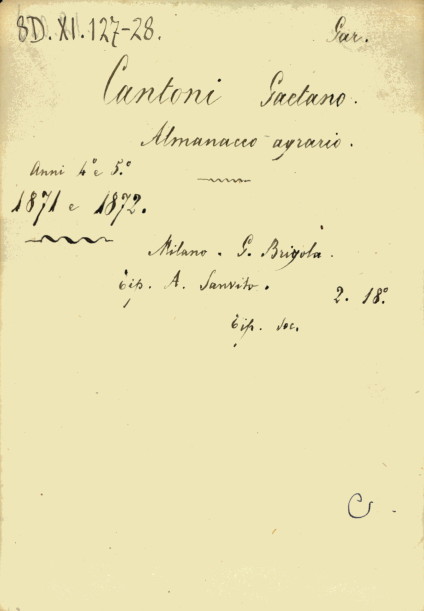 8D. XI. 127-28. Gar.
Cantoni Gaetano.
Almanacco agrario.
Anni 4° e 5.°
1871 e 1872.
Milano. G. Brigola.
Tip. A. Sanvito. 2. 18°
Tip. soc.